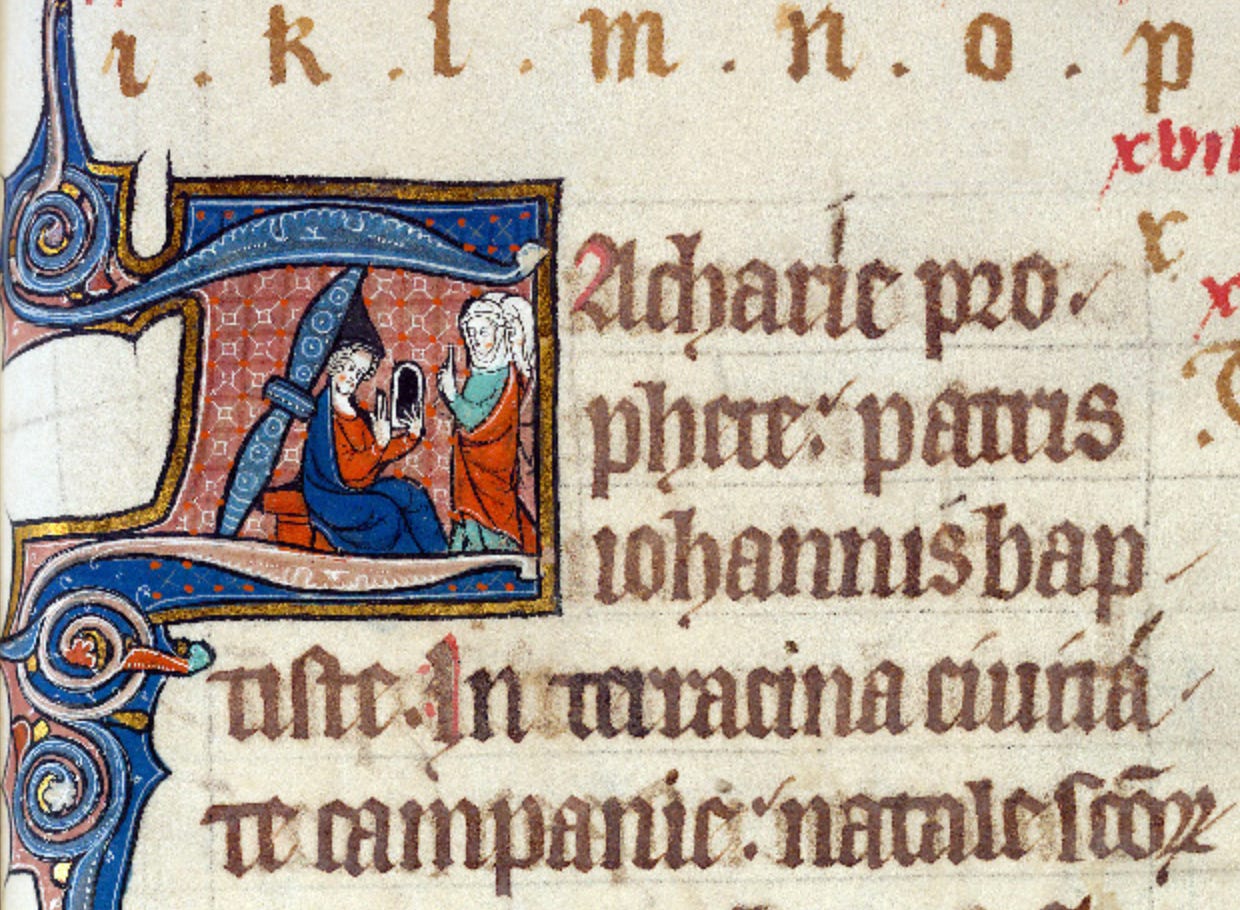 i . k . l . m . n . o . p
xvii
r
x
ZAcharie pro
phete: patris
iohannis bap
tiste. In terracina ciuita
te campanie: natale scōꝝ